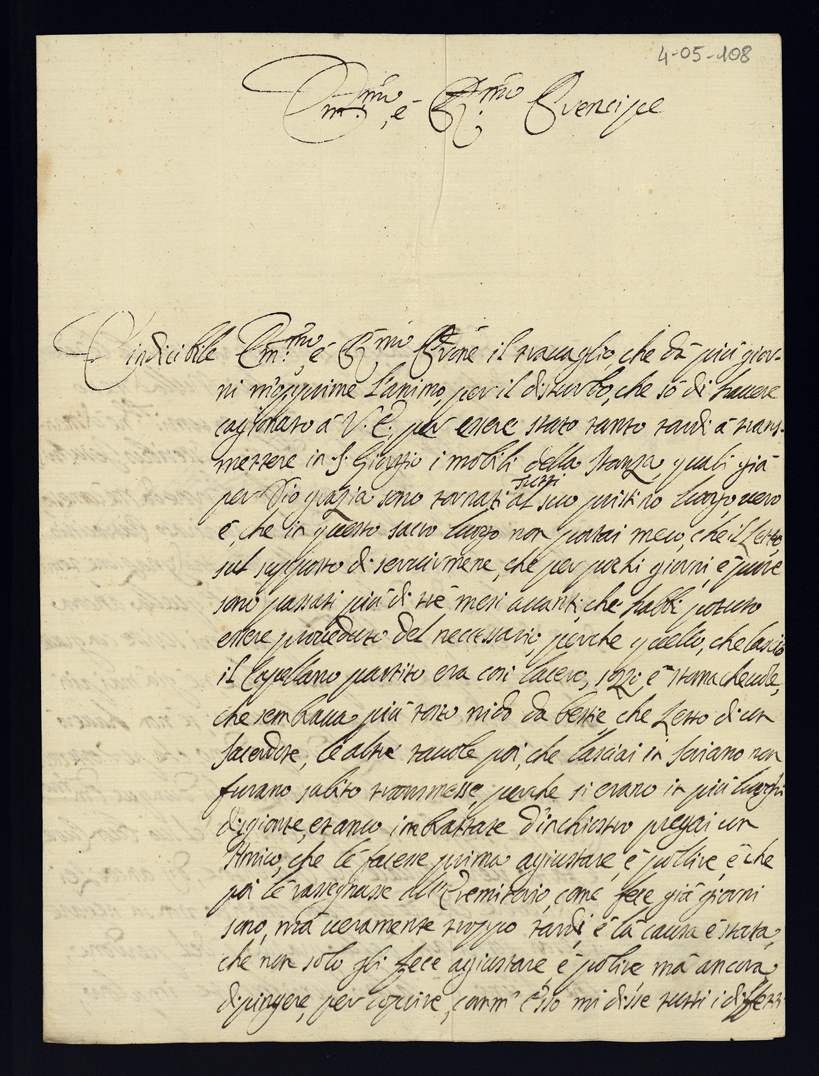 4-05-108
Em.mo, e R.mo Prencipe
È indicibile Em.mo, e R.mo Prone il travaglio, che da più gior-
ni m'opprime l'animo, per il disturbo, che sò di havere
cagionato à V. E. per essere stato tanto tardi à trans-
mettere in S. Giorgio i mobili della stanza, quali già
per Dio grazia sono tornati tutti al suo pristino luogo vero
è, che in questo sacro luogo non portai meco, che il Letto
sul supposto di servirmene, che per pochi giorni, e pure
sono passati più di trè mesi avanti, che habbi potuto
essere proveduto del necessario perche quello, che lasciò
il Capellano partito era così lacero, sozzo, e stomachevole,
che sembrava più tosto nido da bestie che Letto di un
Sacerdote, le altre tavole poi, che lasciai in Soriano non
furano subito transmesse, perche si erano in più luoghi
disgionte, et anco imbrattate d'inchiostro pregai un
Amico, che le facesse prima agiustare, e polire, e che
poi le rassegnasse all' Eremitorio, come fece già giorni
sono, mà veramente troppo tardi, e la causa è stata,
che non solo gli fece agiustare, e polire mà ancora
dipingere, per coprire, comm' esso mi disse tutti i diffetti